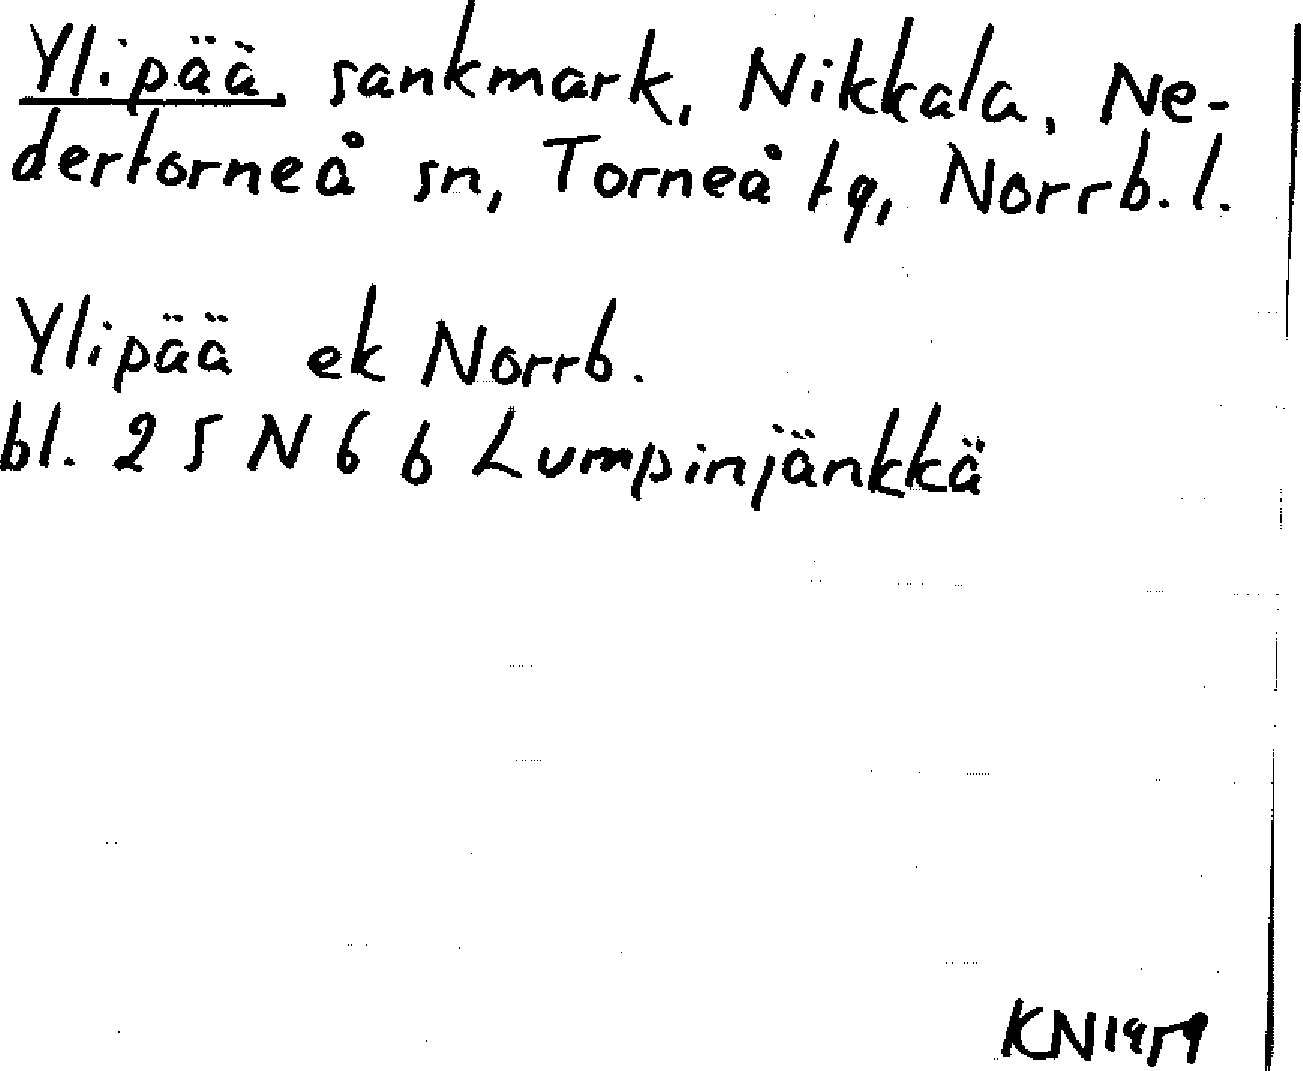 Ylipää, sankmark, Nikkala, Ne-
dertorneå sn, Torneå tg, Norrb. l.
Ylipää ek Norrb.
bl. 25 N 6 b Lumpinjänkkä
KN 1959